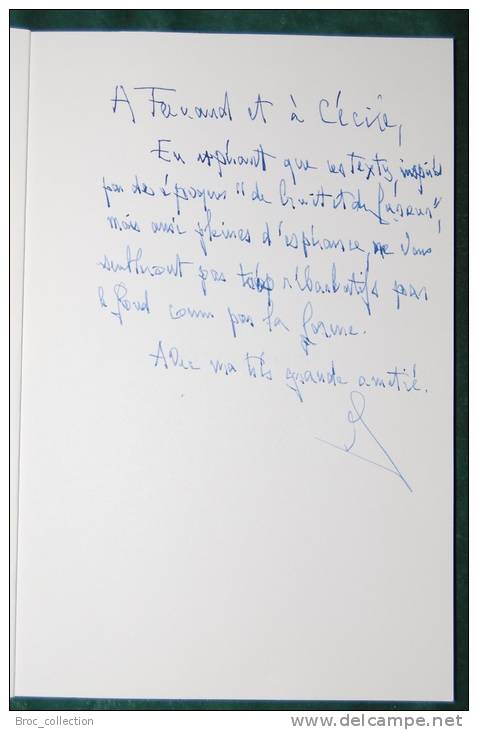 A Fernand et à Cécile,
En espérant que ces textes, inspirés
par des époques "de bruit et de fureur",
mais aussi pleines d'espérance, ne vous
sembleront pas trop rébarbatifs par
le fond comme par la forme.
Avec ma très grande amitié.
Broc_collection
http://www.delcampe.net